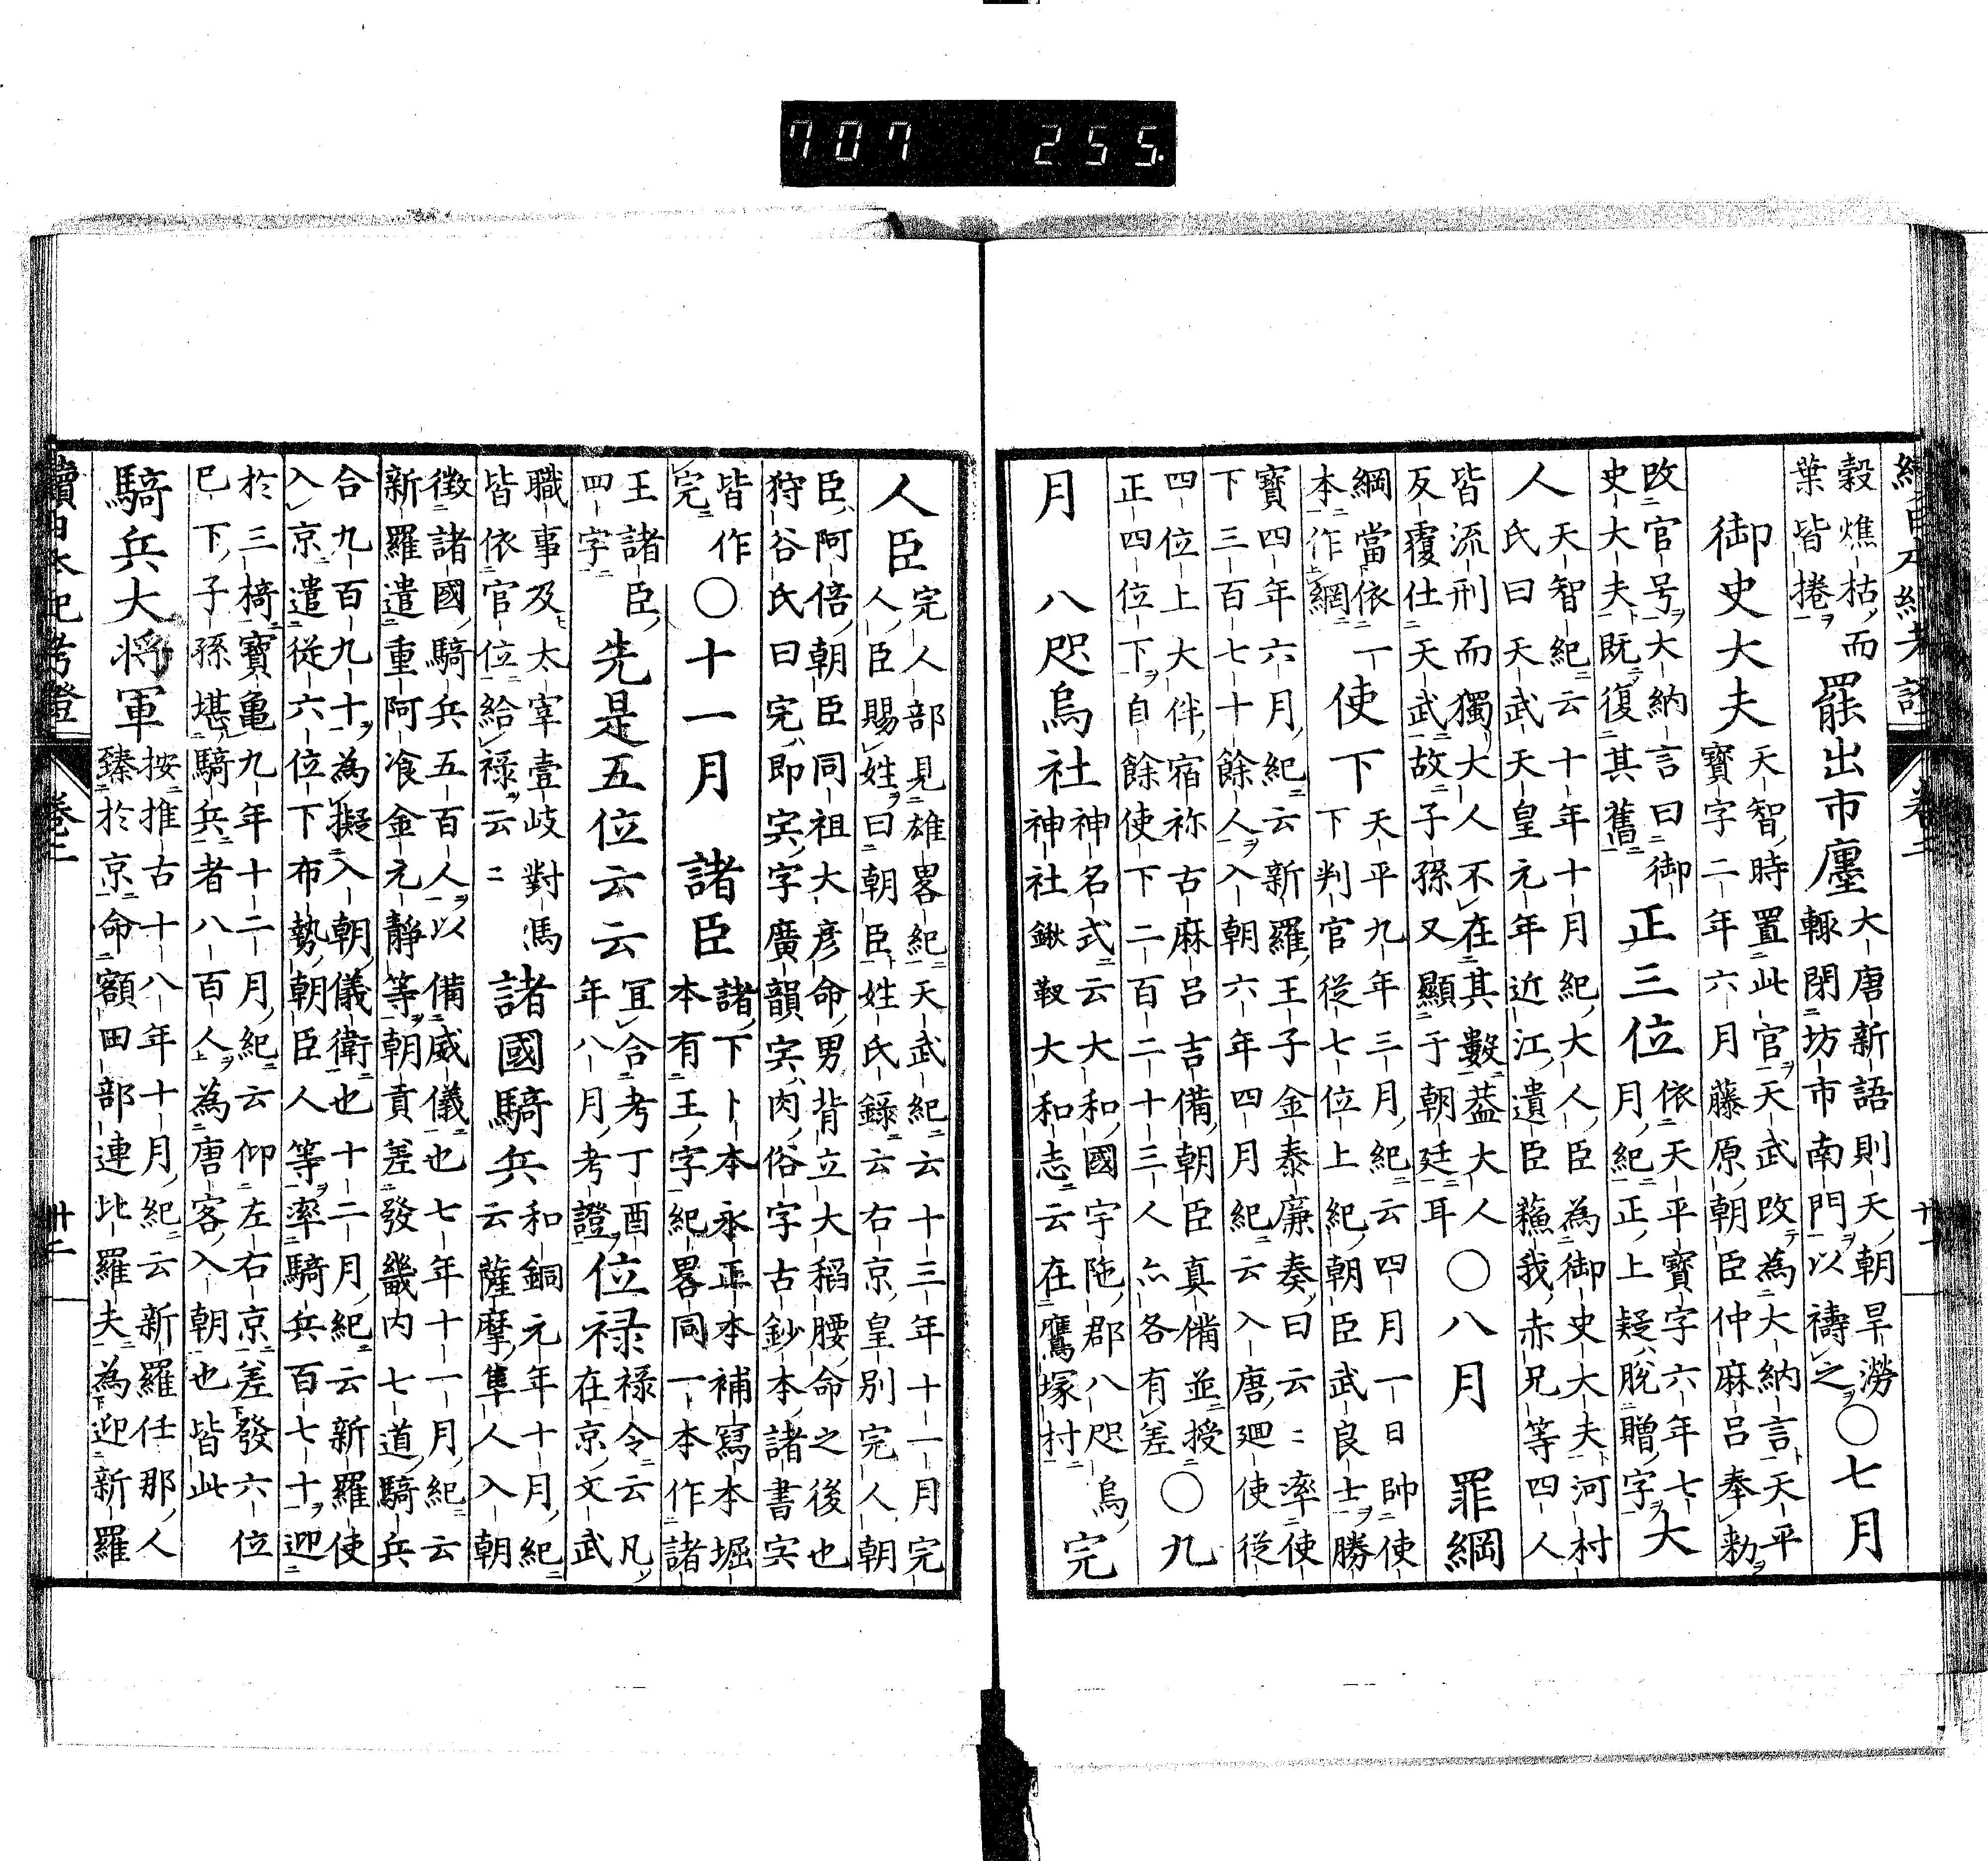 707 255.
續日本紀考證 卷二 廿一
穀燋枯而
葉皆捲
罷出市廛
大唐新語則天朝旱澇
輙閉坊市南門以禱之
○七月
御史大夫
天智時置此官天武改為大納言天平
寶字二年六月藤原朝臣仲麻呂奉勅
改官号大納言曰御
史大夫既復其舊
正三位
依天平寶字六年七
月紀正上疑脱贈字
大
人
天智紀云十年十月紀大人臣為御史大夫河村
氏曰天武天皇元年近江遺臣蘓我赤兄等四人
皆流刑而獨大人不在其數葢大人
反覆仕天武故子孫又顯于朝廷耳
○八月 罪綱
綱當依一
本作網
使下
天平九年三月紀云四月一日帥使
下判官從七位上紀朝臣武良士勝
寶四年六月紀云新羅王子金泰廉奏曰云〻率使
下三百七十餘人入朝六年四月紀云入唐廻使從
四位上大伴宿祢古麻呂吉備朝臣真備並授
正四位下自餘使下二百二十三人亦各有差
○九
月 八咫烏社
神名式云大和國宇陁郡八咫烏
神社鍬靫大和志云在鷹塚村
完
人臣
完人部見雄畧紀天武紀云十三年十一月完
人臣賜姓曰朝臣姓氏錄云右京皇別完人朝
臣阿倍朝臣同祖大彦命男背立大稻腰命之後也
狩谷氏曰完即宍字廣韻宍肉俗字古鈔本諸書宍
皆作
完
○十一月 諸臣
諸下卜本永正本補寫本堀
本有王字紀畧同一本作諸
王諸臣
四字
先是五位云云
冝合考丁酉
年八月考證
位禄
禄令云凡
在京文武
職事及太宰壹岐對馬
皆依官位給禄云〻
諸國騎兵
和銅元年十月紀
云薩摩隼人入朝
徵諸國騎兵五百人以備威儀也七年十一月紀云
新羅遣重阿飡金元靜等朝貢差發畿内七道騎兵
合九百九十為擬入朝儀衛也十二月紀云新羅使
入京遣從六位下布勢朝臣人等率騎兵百七十迎
於三椅寶亀九年十二月紀云仰左右京差發六位
已下子孫堪騎兵者八百人為唐客入朝也皆此
騎兵大将軍
按推古十八年十月紀云新羅任那人
臻於京命額田部連比羅夫為迎新羅
續日本紀考證 卷二 廿二